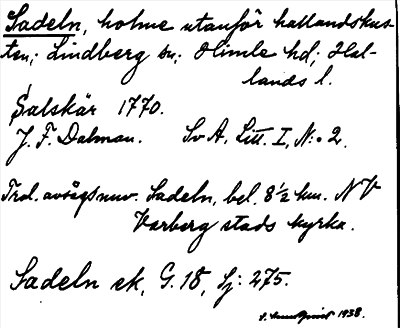 Sadeln, holme utanför hallandskus-
ten; Lindberg sn; Himle hd; Hal-
lands l.
Salskär 1770.
J. F. Dalman. Sv A, Litt. I, N:o 2.
Trol. avsågs nuv. Sadeln, bel. 8½ km. NV
Varberg stads kyrka.
Sadeln sk, G. 18, Sj: 275.
1938.